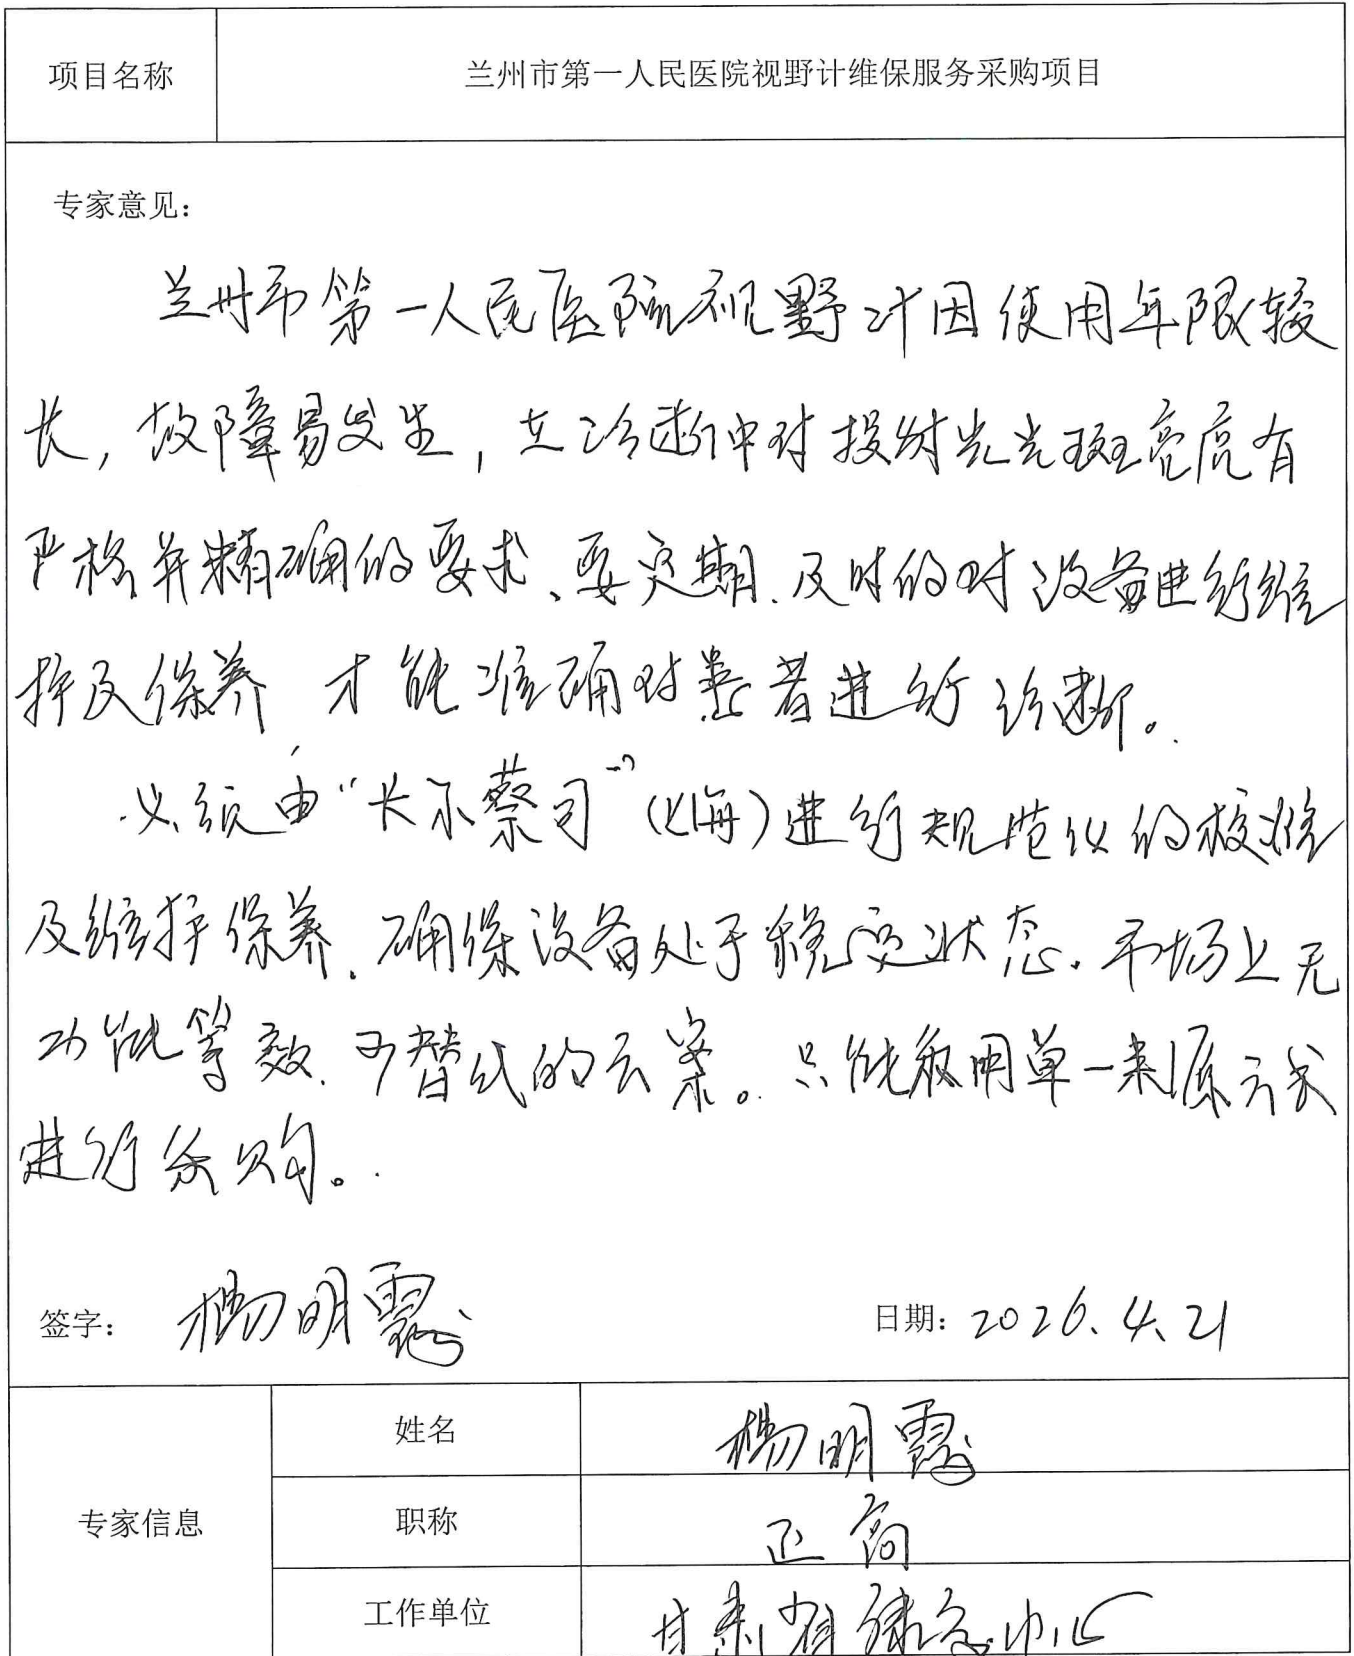 项目名称 兰州市第一人民医院视野计维保服务采购项目
专家意见：
兰州市第一人民医院视野计因使用年限较
长，故障易发生，在诊断中对投射光光斑亮度有
严格并精确的要求、要定期、及时的对设备进行维
护及保养 才能准确对患者进行诊断。
必须由“长尔蔡司”（上海）进行规范化的校准
及维护保养、确保设备处于稳定状态. 市场上无
功能等效、可替代的方案。只能采用单一来源方式
进行采购。
签字： 杨明 日期：2026.4.21
专家信息 姓名 杨明
职称 正高
工作单位 甘肃省 中心